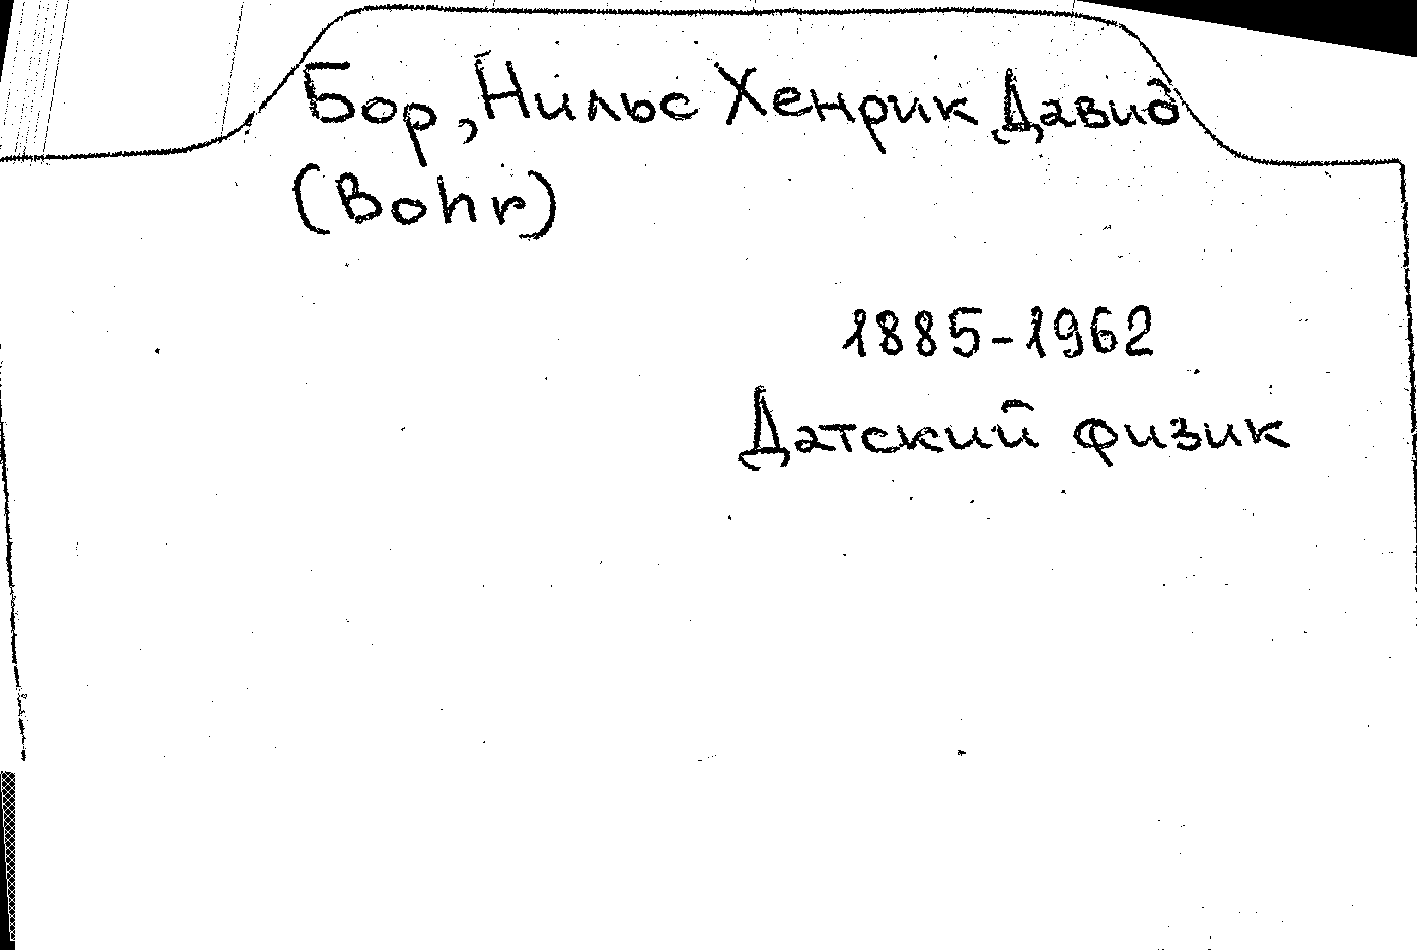 Бор, Нильс Хенрик Давид
(Bohr)
1885-1962
Датский физик